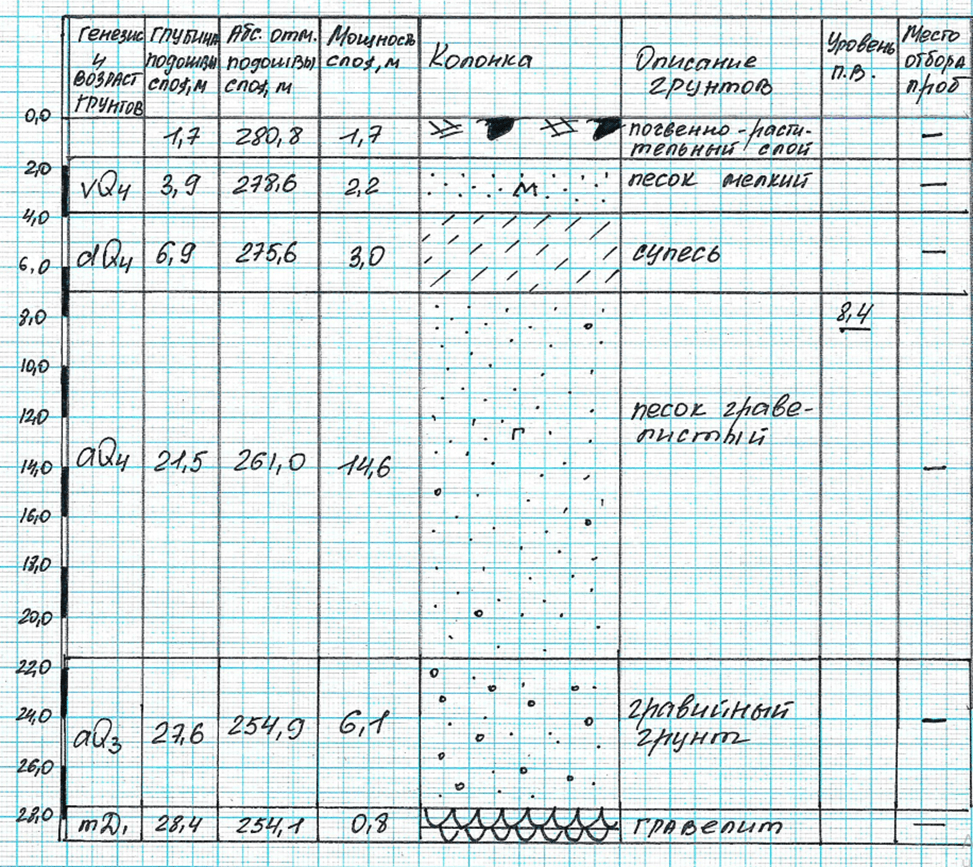 Генезис и возраст грунтов
Глубина подошвы слоя, м
Абс. отм. подошвы слоя, м
Мощность слоя, м
Колонка
Описание грунтов
Уровень п.в.
Место отбора проб
0,0
1,7 280,8 1,7 почвенно-расти-
тельный слой —
2,0
vQ4 3,9 278,6 2,2 м песок мелкий —
4,0
dQ4 6,9 275,6 3,0 супесь —
6,0
8,0
8,4
10,0
12,0
песок граве-
листый
г
aQ4 21,5 261,0 14,6 —
14,0
16,0
18,0
20,0
22,0
24,0
гравийный
грунт
aQ3 27,6 254,9 6,1 —
26,0
28,0
mD1 28,4 254,1 0,8 гравелит —